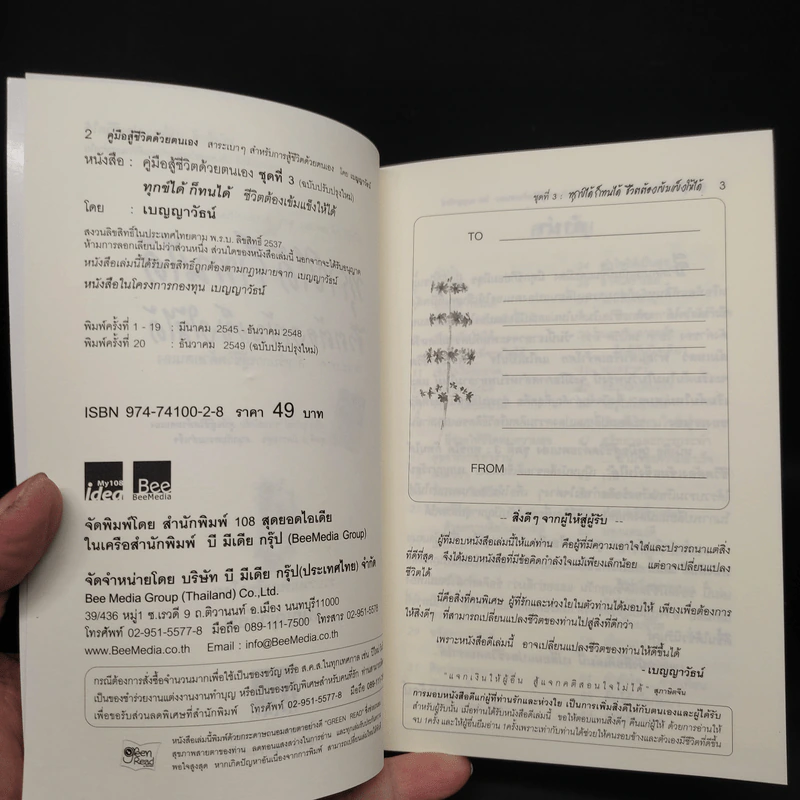 2 คู่มือสู้ชีวิตด้วยตนเอง สาระเบาๆ สำหรับการสู้ชีวิตด้วยตนเอง โดย เบญญาวัธน์
หนังสือ : คู่มือสู้ชีวิตด้วยตนเอง ชุดที่ 3 (ฉบับปรับปรุงใหม่)
ทุกข์ได้ ก็ทนได้ ชีวิตต้องเข้มแข็งให้ได้
โดย : เบญญาวัธน์
สงวนลิขสิทธิ์ในประเทศไทยตาม พ.ร.บ. ลิขสิทธิ์ 2537
ห้ามการลอกเลียนไม่ว่าส่วนหนึ่ง ส่วนใดของหนังสือเล่มนี้ นอกจากจะได้รับอนุญาต
หนังสือเล่มนี้ได้รับลิขสิทธิ์ถูกต้องตามกฎหมายจาก เบญญาวัธน์
หนังสือในโครงการกองทุน เบญญาวัธน์
พิมพ์ครั้งที่ 1 - 19 : มีนาคม 2545 - ธันวาคม 2548
พิมพ์ครั้งที่ 20 : ธันวาคม 2549 (ฉบับปรับปรุงใหม่)
ISBN 974-74100-2-8 ราคา 49 บาท
My108 idea Bee BeeMedia
จัดพิมพ์โดย สำนักพิมพ์ 108 สุดยอดไอเดีย
ในเครือสำนักพิมพ์ บี มีเดีย กรุ๊ป (BeeMedia Group)
จัดจำหน่ายโดย บริษัท บี มีเดีย กรุ๊ป(ประเทศไทย) จำกัด
Bee Media Group (Thailand) Co.,Ltd.
39/436 หมู่1 ซ.เรวดี 9 ถ.ติวานนท์ อ.เมือง นนทบุรี11000
โทรศัพท์ 02-951-5577-8 มือถือ 089-111-7500 โทรสาร 02-951-5578
www.BeeMedia.co.th Email : info@BeeMedia.co.th
กรณีต้องการสั่งซื้อจำนวนมากเพื่อใช้เป็นของขวัญ หรือ ส.ค.ส.ในทุกเทศกาล เช่น ปีใหม่
เป็นของชำร่วยงานแต่งงานงานทำบุญ หรือเป็นของขวัญพิเศษสำหรับคนที่รัก
เพื่อขอรับส่วนลดพิเศษที่สำนักพิมพ์ โทรศัพท์ 02-951-5577-8 มือถือ
green Read
หนังสือเล่มนี้พิมพ์ด้วยกระดาษถนอมสายตาอย่างดี "GREEN READ"
สุขภาพสายตาของท่าน ลดทอนแสงสว่างในการอ่าน
พอใจสูงสุด หากเกิดปัญหาอันเนื่องจากการพิมพ์
ชุดที่ 3 : ทุกข์ได้ ก็ทนได้ ชีวิตต้องเข้มแข็งให้ได้ 3
TO
FROM
-- สิ่งดีๆ จากผู้ให้สู่ผู้รับ --
ผู้ที่มอบหนังสือเล่มนี้ให้แต่ท่าน คือผู้ที่มีความเอาใจใส่และปรารถนาแต่สิ่ง
ที่ดีที่สุด จึงได้มอบหนังสือที่มีข้อคิดกำลังใจแม้เพียงเล็กน้อย แต่อาจเปลี่ยนแปลง
ชีวิตได้
นี่คือสิ่งที่คนพิเศษ ผู้ที่รักและห่วงใยในตัวท่านได้มอบให้ เพียงเพื่อต้องการ
ให้สิ่งดีๆ ที่สามารถเปลี่ยนแปลงชีวิตของท่านไปสู่สิ่งที่ดีกว่า
เพราะหนังสือดีเล่มนี้ อาจเปลี่ยนแปลงชีวิตของท่านให้ดีขึ้นได้
- เบญญาวัธน์
"แจกเงินให้ผู้อื่น สู้แจกคติสอนใจไม่ได้" สุภาษิตจีน
การมอบหนังสือดีแก่ผู้ที่ท่านรักและห่วงใย เป็นการเพิ่มสิ่งดีให้กับตนเองและผู้ได้รับ
สำหรับผู้รับนั้น เมื่อท่านได้รับหนังสือดีเล่มนี้ ขอให้ตอบแทนสิ่งดีๆ คืนแก่ผู้ให้ ด้วยการอ่านให้
จบ 1ครั้ง และให้ผู้อื่นยืมอ่าน 1ครั้งเพราะเท่ากับท่านได้ช่วยให้คนรอบข้างและตัวเองมีชีวิตที่ดีขึ้น